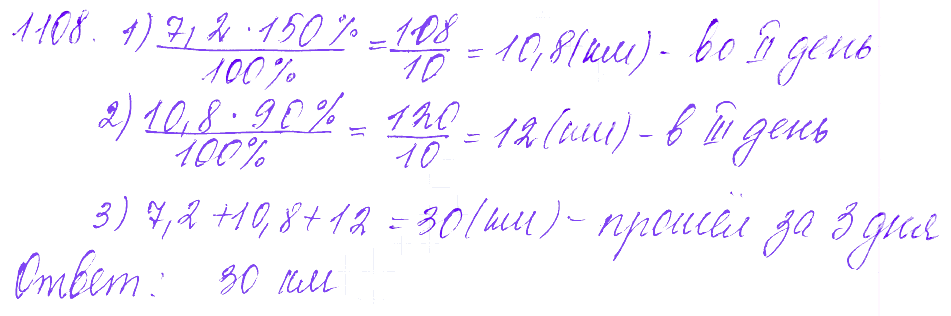 1108. 1) 7,2 · 150% / 100% = 108/10 = 10,8 (км) - во II день
2) 10,8 · 90% / 100% = 120/10 = 12 (км) - в III день
3) 7,2 + 10,8 + 12 = 30 (км) - прошёл за 3 дня
Ответ: 30 км